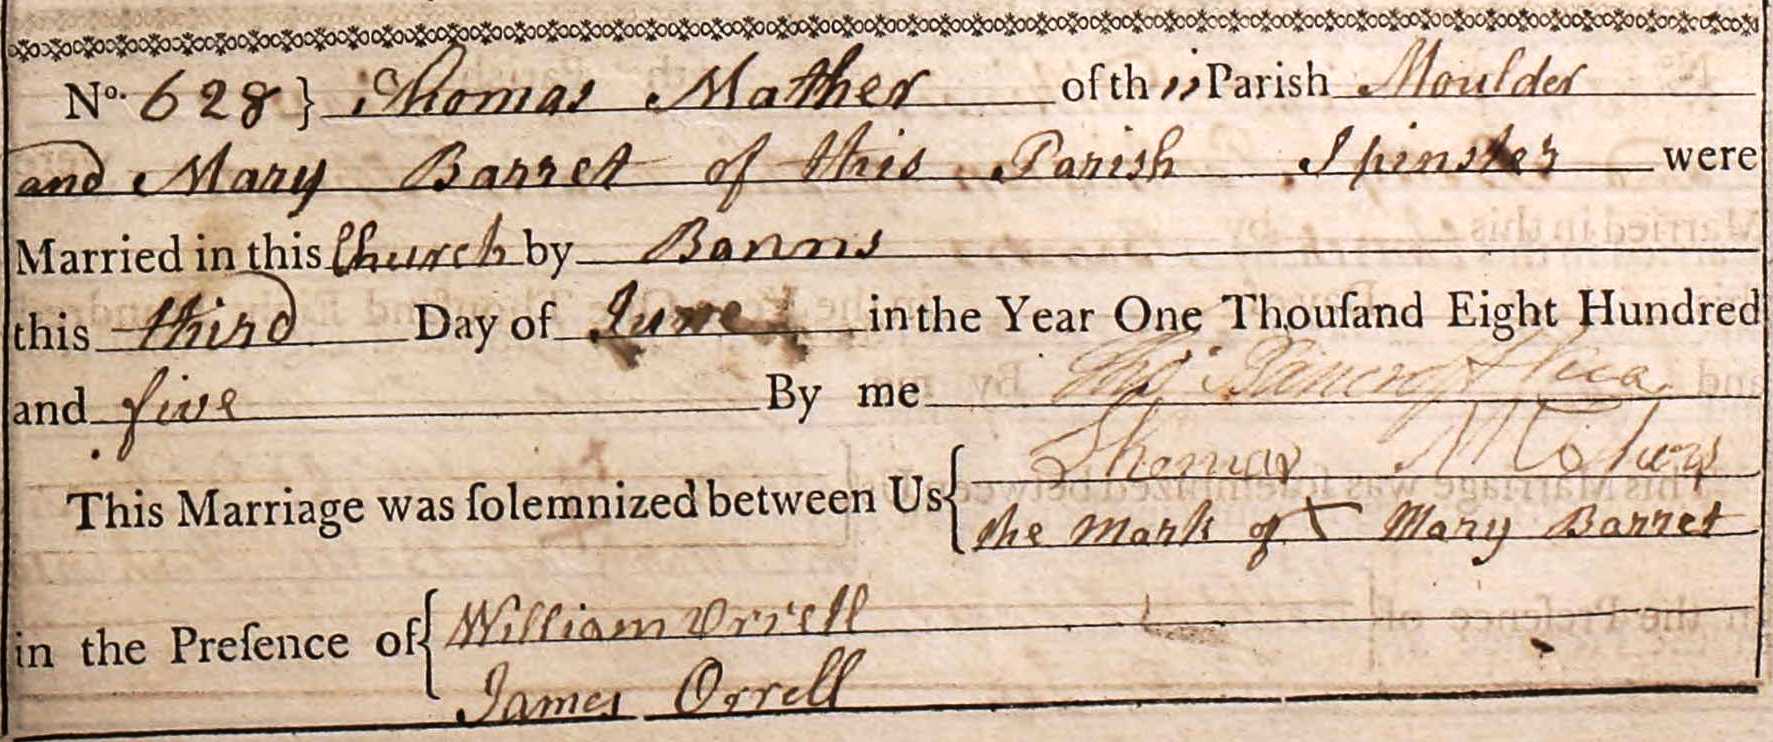 No. 628 } Thomas Mather of th is Parish Moulder
and Mary Barret of this Parish Spinster were
Married in this Church by Banns
this third Day of June in the Year One Thouſand Eight Hundred
and five By me Thos Bancroft Vicar
This Marriage was ſolemnized between Us { Thomas
the Mark of X Mary Barret
in the Preſence of { William Orrell
James Orrell